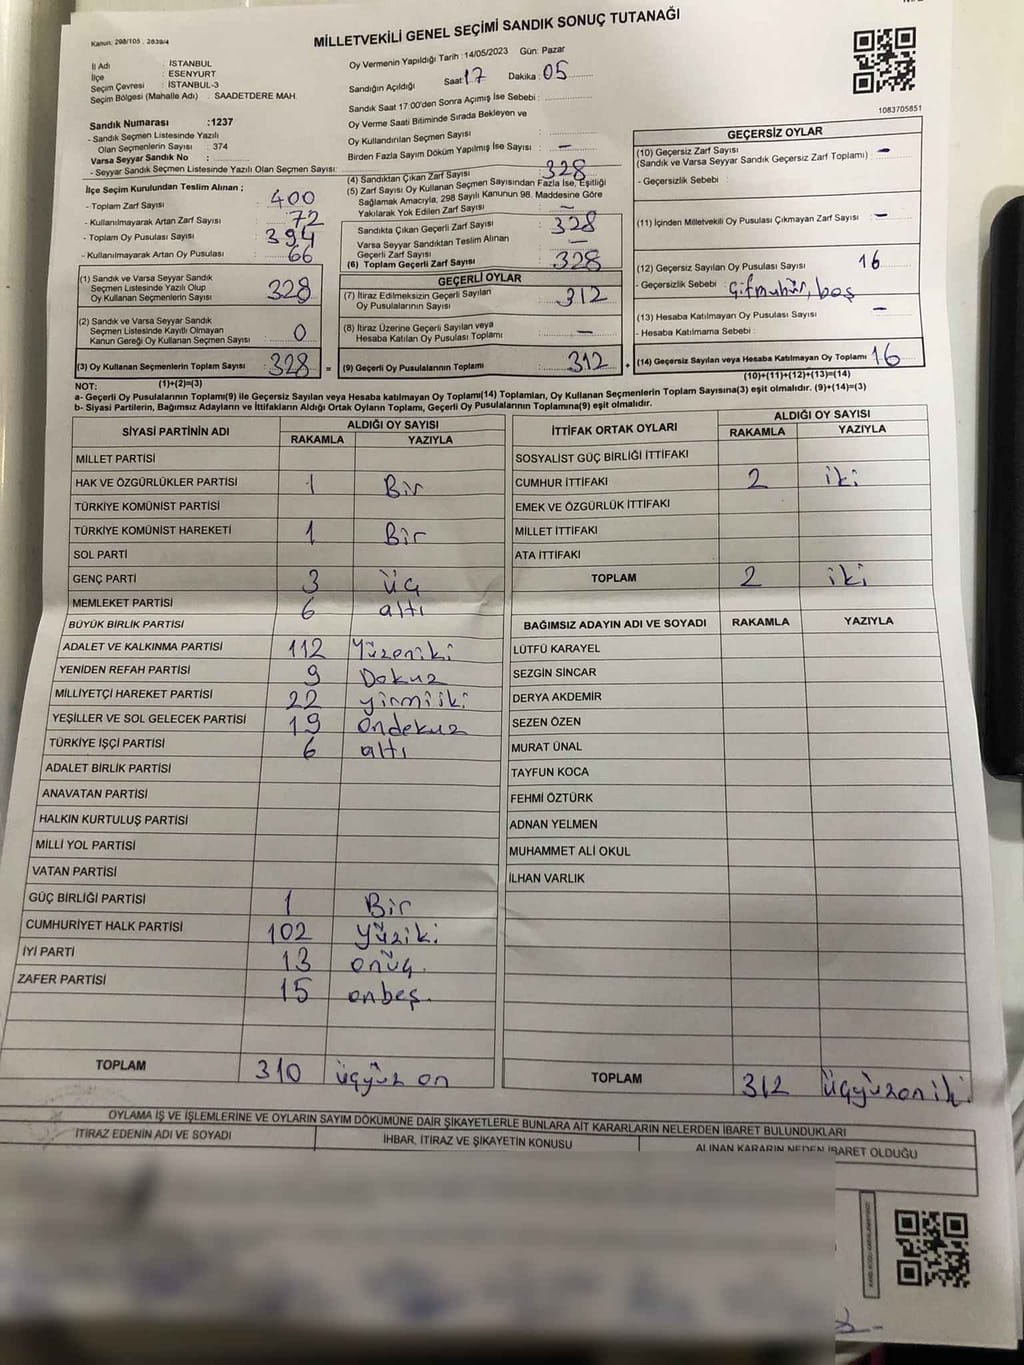 MİLLETVEKİLİ GENEL SEÇİMİ SANDIK SONUÇ TUTANAĞI
Kanun: 298/105 , 2839/4
İl Adı : İSTANBUL
İlçe : ESENYURT
Seçim Çevresi : İSTANBUL-3
Seçim Bölgesi (Mahalle Adı) : SAADETDERE MAH.
Sandık Numarası :1237
- Sandık Seçmen Listesinde Yazılı
Olan Seçmenlerin Sayısı : 374
Varsa Seyyar Sandık No :
- Seyyar Sandık Seçmen Listesinde Yazılı Olan Seçmen Sayısı:
Oy Vermenin Yapıldığı Tarih : 14/05/2023 Gün: Pazar
Sandığın Açıldığı Saat: 17 Dakika : 05
Sandık Saat 17.00'den Sonra Açımış İse Sebebi :
Oy Verme Saati Bitiminde Sırada Bekleyen ve
Oy Kullandırılan Seçmen Sayısı :
Birden Fazla Sayım Döküm Yapılmış İse Sayısı : –
1083705851
İlçe Seçim Kurulundan Teslim Alınan ;
- Toplam Zarf Sayısı : 400
- Kullanılmayarak Artan Zarf Sayısı : 72
- Toplam Oy Pusulası Sayısı : 394
- Kullanılmayarak Artan Oy Pusulası : 66
(1) Sandık ve Varsa Seyyar Sandık
Seçmen Listesinde Yazılı Olup
Oy Kullanan Seçmenlerin Sayısı : 328
(2) Sandık ve Varsa Seyyar Sandık
Seçmen Listesinde Kayıtlı Olmayan
Kanun Gereği Oy Kullanan Seçmen Sayısı : 0
(3) Oy Kullanan Seçmenlerin Toplam Sayısı : 328 =
(4) Sandıktan Çıkan Zarf Sayısı : 328
(5) Zarf Sayısı Oy Kullanan Seçmen Sayısından Fazla İse, Eşitliği
Sağlamak Amacıyla, 298 Sayılı Kanunun 98. Maddesine Göre
Yakılarak Yok Edilen Zarf Sayısı : –
Sandıkta Çıkan Geçerli Zarf Sayısı : 328
Varsa Seyyar Sandıktan Teslim Alınan
Geçerli Zarf Sayısı : –
(6) Toplam Geçerli Zarf Sayısı : 328
GEÇERLİ OYLAR
(7) İtiraz Edilmeksizin Geçerli Sayılan
Oy Pusulalarının Sayısı : 312
(8) İtiraz Üzerine Geçerli Sayılan veya
Hesaba Katılan Oy Pusulası Toplamı : –
(9) Geçerli Oy Pusulalarının Toplamı : 312 +
GEÇERSİZ OYLAR
(10) Geçersiz Zarf Sayısı : –
(Sandık ve Varsa Seyyar Sandık Geçersiz Zarf Toplamı)
- Geçersizlik Sebebi :
(11) İçinden Milletvekili Oy Pusulası Çıkmayan Zarf Sayısı : –
(12) Geçersiz Sayılan Oy Pusulası Sayısı : 16
- Geçersizlik Sebebi : Çifmühür, boş
(13) Hesaba Katılmayan Oy Pusulası Sayısı : –
- Hesaba Katılmama Sebebi :
(14) Geçersiz Sayılan veya Hesaba Katılmayan Oy Toplamı : 16
(10)+(11)+(12)+(13)=(14)
NOT: (1)+(2)=(3)
a- Geçerli Oy Pusulalarının Toplamı(9) ile Geçersiz Sayılan veya Hesaba Katılmayan Oy Toplamı(14) Toplamları, Oy Kullanan Seçmenlerin Toplam Sayısına(3) eşit olmalıdır. (9)+(14)=(3)
b- Siyasi Partilerin, Bağımsız Adayların ve İttifakların Aldığı Ortak Oyların Toplamı, Geçerli Oy Pusulalarının Toplamına(9) eşit olmalıdır.
SİYASİ PARTİNİN ADI ALDIĞI OY SAYISI
RAKAMLA YAZIYLA
MİLLET PARTİSİ
HAK VE ÖZGÜRLÜKLER PARTİSİ 1 Bir
TÜRKİYE KOMÜNİST PARTİSİ
TÜRKİYE KOMÜNİST HAREKETİ 1 Bir
SOL PARTİ
GENÇ PARTİ 3 üç
MEMLEKET PARTİSİ 6 altı
BÜYÜK BİRLİK PARTİSİ
ADALET VE KALKINMA PARTİSİ 112 Yüzoniki
YENİDEN REFAH PARTİSİ 9 Dokuz
MİLLİYETÇİ HAREKET PARTİSİ 22 yirmiiki
YEŞİLLER VE SOL GELECEK PARTİSİ 19 ondokuz
TÜRKİYE İŞÇİ PARTİSİ 6 altı
ADALET BİRLİK PARTİSİ
ANAVATAN PARTİSİ
HALKIN KURTULUŞ PARTİSİ
MİLLİ YOL PARTİSİ
VATAN PARTİSİ
GÜÇ BİRLİĞİ PARTİSİ 1 Bir
CUMHURİYET HALK PARTİSİ 102 yüziki.
İYİ PARTİ 13 onüç.
ZAFER PARTİSİ 15 onbeş.
TOPLAM 310 üçyüz on
İTTİFAK ORTAK OYLARI ALDIĞI OY SAYISI
RAKAMLA YAZIYLA
SOSYALİST GÜÇ BİRLİĞİ İTTİFAKI
CUMHUR İTTİFAKI 2 iki
EMEK VE ÖZGÜRLÜK İTTİFAKI
MİLLET İTTİFAKI
ATA İTTİFAKI
TOPLAM 2 iki
BAĞIMSIZ ADAYIN ADI VE SOYADI RAKAMLA YAZIYLA
LÜTFÜ KARAYEL
SEZGİN SİNCAR
DERYA AKDEMİR
SEZEN ÖZEN
MURAT ÜNAL
TAYFUN KOCA
FEHMİ ÖZTÜRK
ADNAN YELMEN
MUHAMMET ALİ OKUL
İLHAN VARLIK
TOPLAM 312 üçyüzoniki
OYLAMA İŞ VE İŞLEMLERİNE VE OYLARIN SAYIM DÖKÜMÜNE DAİR ŞİKAYETLERLE BUNLARA AİT KARARLARIN NELERDEN İBARET BULUNDUKLARI
İTİRAZ EDENİN ADI VE SOYADI İHBAR, İTİRAZ VE ŞİKAYETİN KONUSU ALINAN KARARIN NEDEN İBARET OLDUĞU